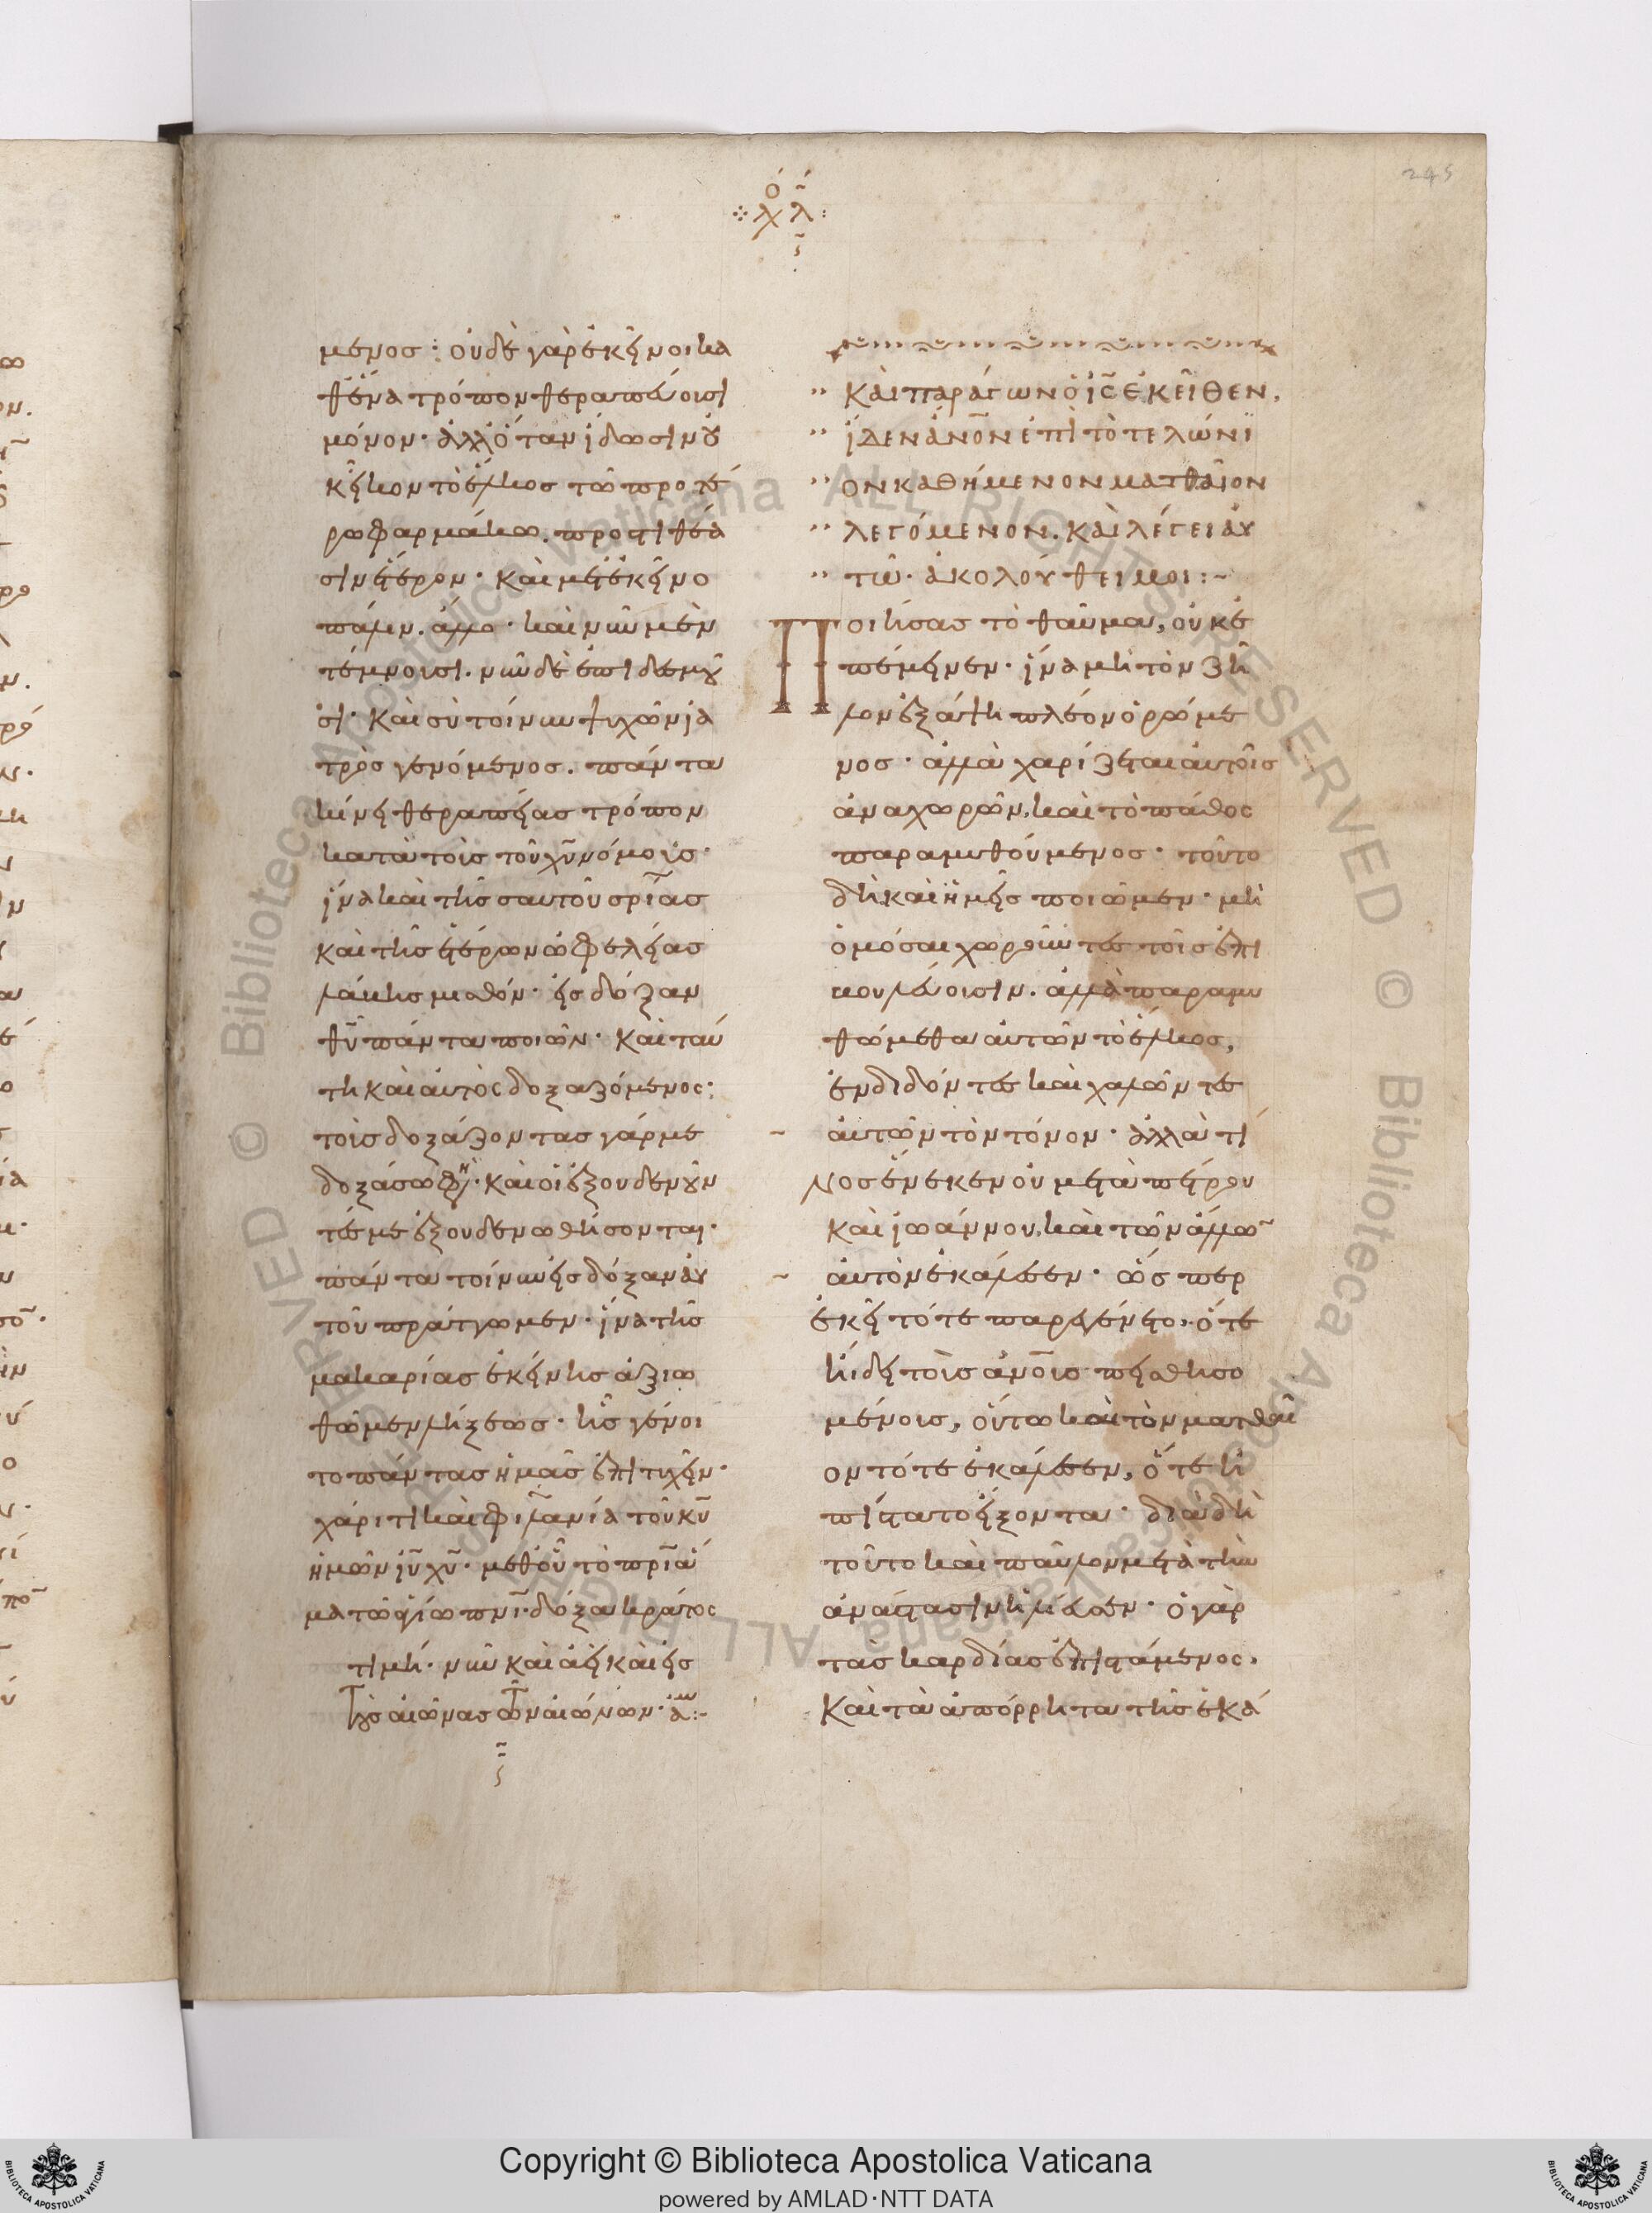 245
ὁμιλ λ
μενος : οὐδὲ γὰρ ἐκεῖνοι κα
θένα τρόπον θεραπεύουσι
μόνον · ἀλλ' ὅταν ἴδωσι νου
κεῖκον τὸ ἕλκος τῶ προτέ
ρω φαρμάκω . προστιθέα
σιν ἕτερον · καὶ μετ' ἐκεῖνο
πάλιν . ἄλλο · καὶ νῦν μὲν
τέμνουσι . νῦν δὲ ἐπιδεσμοῦ
σι · καὶ σὺ τοίνυν ψυχῶν ἰα
τρὸς γενόμενος . πάντα
κίνει θεραπείας τρόπον
κατὰ τοὺς τοῦ χῦ νόμους ·
ἵνα καὶ τῆς σαυτοῦ σρίας
καὶ τῆς ἑτέρων ὠφελείας
λάβης μισθόν · εἰς δόξαν
θῦ πάντα ποιῶν · καὶ ταύ
τη καὶ αὐτὸς δοξαζόμενος :
τοὺς δοξάζοντας γάρ με
δοξάσω φη · καὶ οἱ ἐξουδενοῦν
τές με ἐξουδενωθήσονται ·
πάντα τοίνυν εἰς δόξαν αὐ
τοῦ πράττωμεν · ἵνα τῆς
μακαρίας ἐκείνης ἀξιω
θῶμεν λήξεως · ἧς γένοι
το πάντας ἡμᾶς ἐπιτυχεῖν ·
χάριτι καὶ φιλανία τοῦ κῦ
ἡμῶν ἰῦ χῦ · μεθ' οὗ τὸ πρὶ ἅ
μα τῶ ἁγίω πνι · δόξα κράτος
τιμή · νῦν καὶ ἀεὶ καὶ εἰς
τοὺς αἰῶνας τῶν αἰώνων · ἀμ :~
Καὶ παράγων ὁ ἰς ἐκεῖθεν ,
ἴδεν ἀνον ἐπὶ τὸ τελώνι
ον καθήμενον ματθαῖον
λεγόμενον . καὶ λέγει αὐ
τῶ · ἀκολούθει μοι :~
Ποιήσας τὸ θαῦμα , οὐκ ἐ
πέμεινεν · ἵνα μὴ τὸν ζῆ
λον ἐξάψη πλέον ὁρώμε
νος · ἀλλὰ χαρίζεται αὐτοῖς
ἀναχωρῶν , καὶ τὸ πάθος
παραμυθούμενος · τοῦτο
δὴ καὶ ἡμεῖς ποιῶμεν · μὴ
ὁμόσαι χωροῦντες τοῖς ἐπι
βουλεύουσιν . ἀλλὰ παραμυ
θώμεθα αὐτῶν τὸ ἕλκος ,
ἐνδιδόντες καὶ χαλῶντες
αὐτῶν τὸν τόνον · ἀλλὰ τί
νος ἕνεκεν οὐ μετὰ πέτρου
καὶ ἰωάννου , καὶ τῶν ἄλλω
αὐτὸν ἐκάλεσεν · ὥσπερ
ἐκεῖ τότε παρεγένετο , ὅτε
ἤδει τοὺς ἀνους πεισθησο
μένους , οὕτω καὶ τὸν ματθαῖ
ον τότε ἐκάλεσεν , ὅτε ἠ
πίστατο εἴξοντα · διὰ δὴ
τοῦτο καὶ παῦλον μετὰ τὴν
ἀνάστασιν ἡλίευσεν · ὁ γὰρ
τὰς καρδίας ἐπιστάμενος ,
καὶ τὰ ἀπόρρητα τῆς ἑκά
Copyright © Biblioteca Apostolica Vaticana
powered by AMLAD·NTT DATA